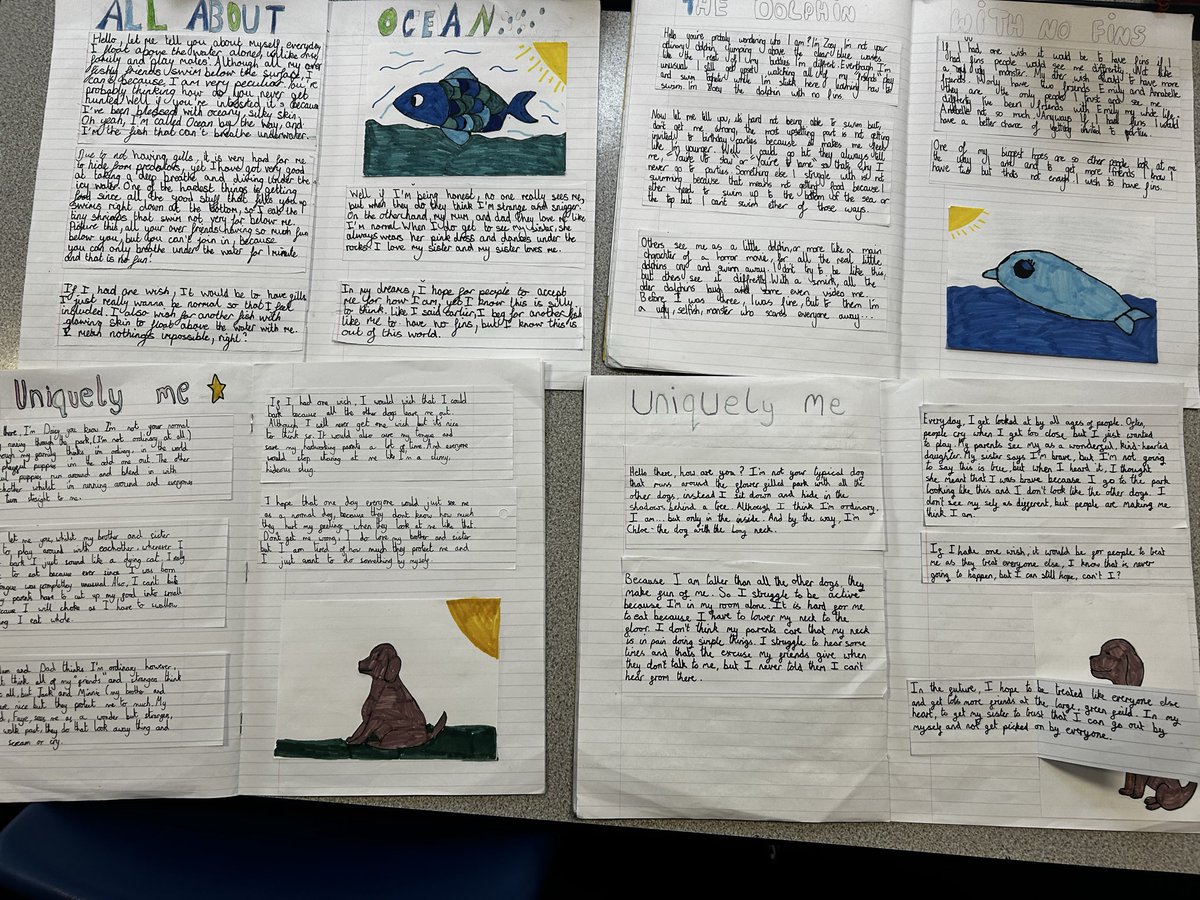 ALL ABOUT
Hello, let me tell you about myself, everyday
I float above the water alone with like no
family and play mates. Although all my over
fishy friends swim below the surface, I
can't because I am very peculiar. You're
probably thinking how do you never get
hunted. Well if you're intrested it's because
I've been blessed with oceany, silky skin.
Oh yeah, I'm called Ocean by the way, and
I'm the fish that can't breathe underwater.
Due to not having gills, it is very hard for me
to hide from predators, yet I have got very good
at taking a deep breathe and diving under the
icy water. One of the hardest things is getting
food since all the good stuff that fills you up
swims right down at the bottom, so I eat the
tiny shrimps that swim not very far below me.
Picture this, all your over friends having so much fun
below you, but you can't join in, because
you can only breathe under the water for 1 minute
and that is no fun!
If I had one wish, It would be to have gills
I just really wanna be normal so that I feel
included. I also wish for another fish with
glowing skin to float above the water with me.
I mean nothing's impossible, right?
OCEAN
Well if I'm being honest, no one really sees me,
but when they do they think I'm strange and snigger.
On the otherhand, my mum and dad They love me like
I'm normal. When I do get to see my sister, she
always wears her pink dress and dances under the
rocks. I love my sister and my sister loves me.
In my dreams, I hope for people to accept
me for how I am, yet I know this is silly
to think. Like I said earlier, I beg for another fish
like me to have no fins, but I know this is
out of this world.
THE DOLPHIN
Hello you're probably wondering who I am? I'm Zoey, I'm not your
ordinary dolphin jumping above the clear blue waves
like the rest of my buddies I'm different. Eventhough I'm
unusual I still get upset watching all of my friends play
and swim together while I'm stuck here learning how to
swim. I'm Zoey the dolphin with no fins.
Now let me tell you, its hard not being able to swim but,
don't get me wrong, the most upsetting part is not getting
invited to birthday parties because it makes me feel
like I'm younger. Well I could go but they always tell
me, "You're to slow" or "You're to lame" so thats why I
never go to parties. Something else I struggle with is not
swimming because that means not getting food because I
ether need to swim up to the bottom of the sea or
the top but I cant swim ether of those ways.
Others see me as a little dolphin, or more like a main
character of a horror movie, for all the real little
dolphins cry and swim away. I don't try to be like this,
but others see it differently. With a smirk, all the
older dolphins laugh and some even video me.
Before I was three, I was fine, But to them I'm
a ugly, selfish, monster who scares everyone away...
WITH NO FINS
If I had one wish it would be to have fins if I
had fins people would see me differently. Not like
a sad ugly monster. My other wish would to have more
friends. I only have two friends Emily and Annabelle
they are the only people I trust and see me
differently. I've been friends with Emily my whole life
Annabelle not so much. Anyways if I had fins I would
have a better chance of getting invited to parties.
One of my biggest hopes are so other people look at me
the way I am and to get more friends. I know I
have two but thats not enough I wish to have fins.
Uniquely me
there, I'm Daisy you know I'm not your normal
running through the park, (I'm not ordinary at all)
my family thinks im ordinary, in the world
puppies im the odd one out. The other
puppies run around and blend in with
eachother whilst im running around and everyone
turn straight to me.
let me tell you, whilst my brother and sister
to play around with eachother, whenever I
bark I just sound like a dying cat. I really
to eat because ever since I was born
tongue was completely unusual. Also, I can't bite
my parents have to cut up my food into small
because I will choke as I have to swallow
I eat whole.
Mum and Dad thinks I'm ordinary however,
think all of my "friends" and strangers think
all, but Jack and Minnie (my brother and
are nice but they protect me to much. My
Faye, sees me as a wonder but strangers,
walk past, they do that look away thing and
scream or cry.
If I had one wish, I would wish that I could
bark because all the other dogs leave me out.
Although I will never get one wish but its nice
to think so. It would also cure my tongue and
save my hardworking parents a lot of time. And everyone
would stop staring at me like I'm a slimy,
hideous slug.
I hope that one day everyone would just see me
as a normal dog, because they don't know how much
they hurt my feelings when they look at me like that.
Don't get me wrong, I do love my brother and sister
but I am tired of how much they protect me and
I just want to do something by myself.
Uniquely me
Hello there, how are you? I'm not your typical dog
that runs around the flower filled park with all the
other dogs, instead I sit down and hide in the
shadows behind a tree. Although I think I'm ordinary,
I am... but only in the inside. And by the way, I'm
Chloe- the dog with the long neck.
Because I am taller than all the other dogs, they
make fun of me. So I struggle to be active
because I'm in my room alone. It is hard for me
to eat because I have to lower my neck to the
floor. I don't think my parents care that my neck
is in pain doing simple things. I struggle to hear some
times and thats the excuse my friends give when
they don't talk to me, but I never told them I can't
hear from there..
Everyday, I get looked at by all ages of people. Often,
people cry when I get too close but I just wanted
to play. My parents see my as a wonderful, kind-hearted
daughter. My sister says I'm brave, but I'm not going
to say this is true but when I heard it, I thought
she meant that I was brave because I go to the park
looking like this and I don't look like the other dogs. I
don't see my self as different, but people are making me
think I am.
If I hake one wish, it would be for people to treat
me as they treat everyone else, I know that is never
going to happen, but I can still hope, can't I?
In the future, I hope to be treated like everyone else
and get lots more friends at the large, green feild. In my
heart, to get my sister to trust that I can go out by
myself and not get picked on by everyone.